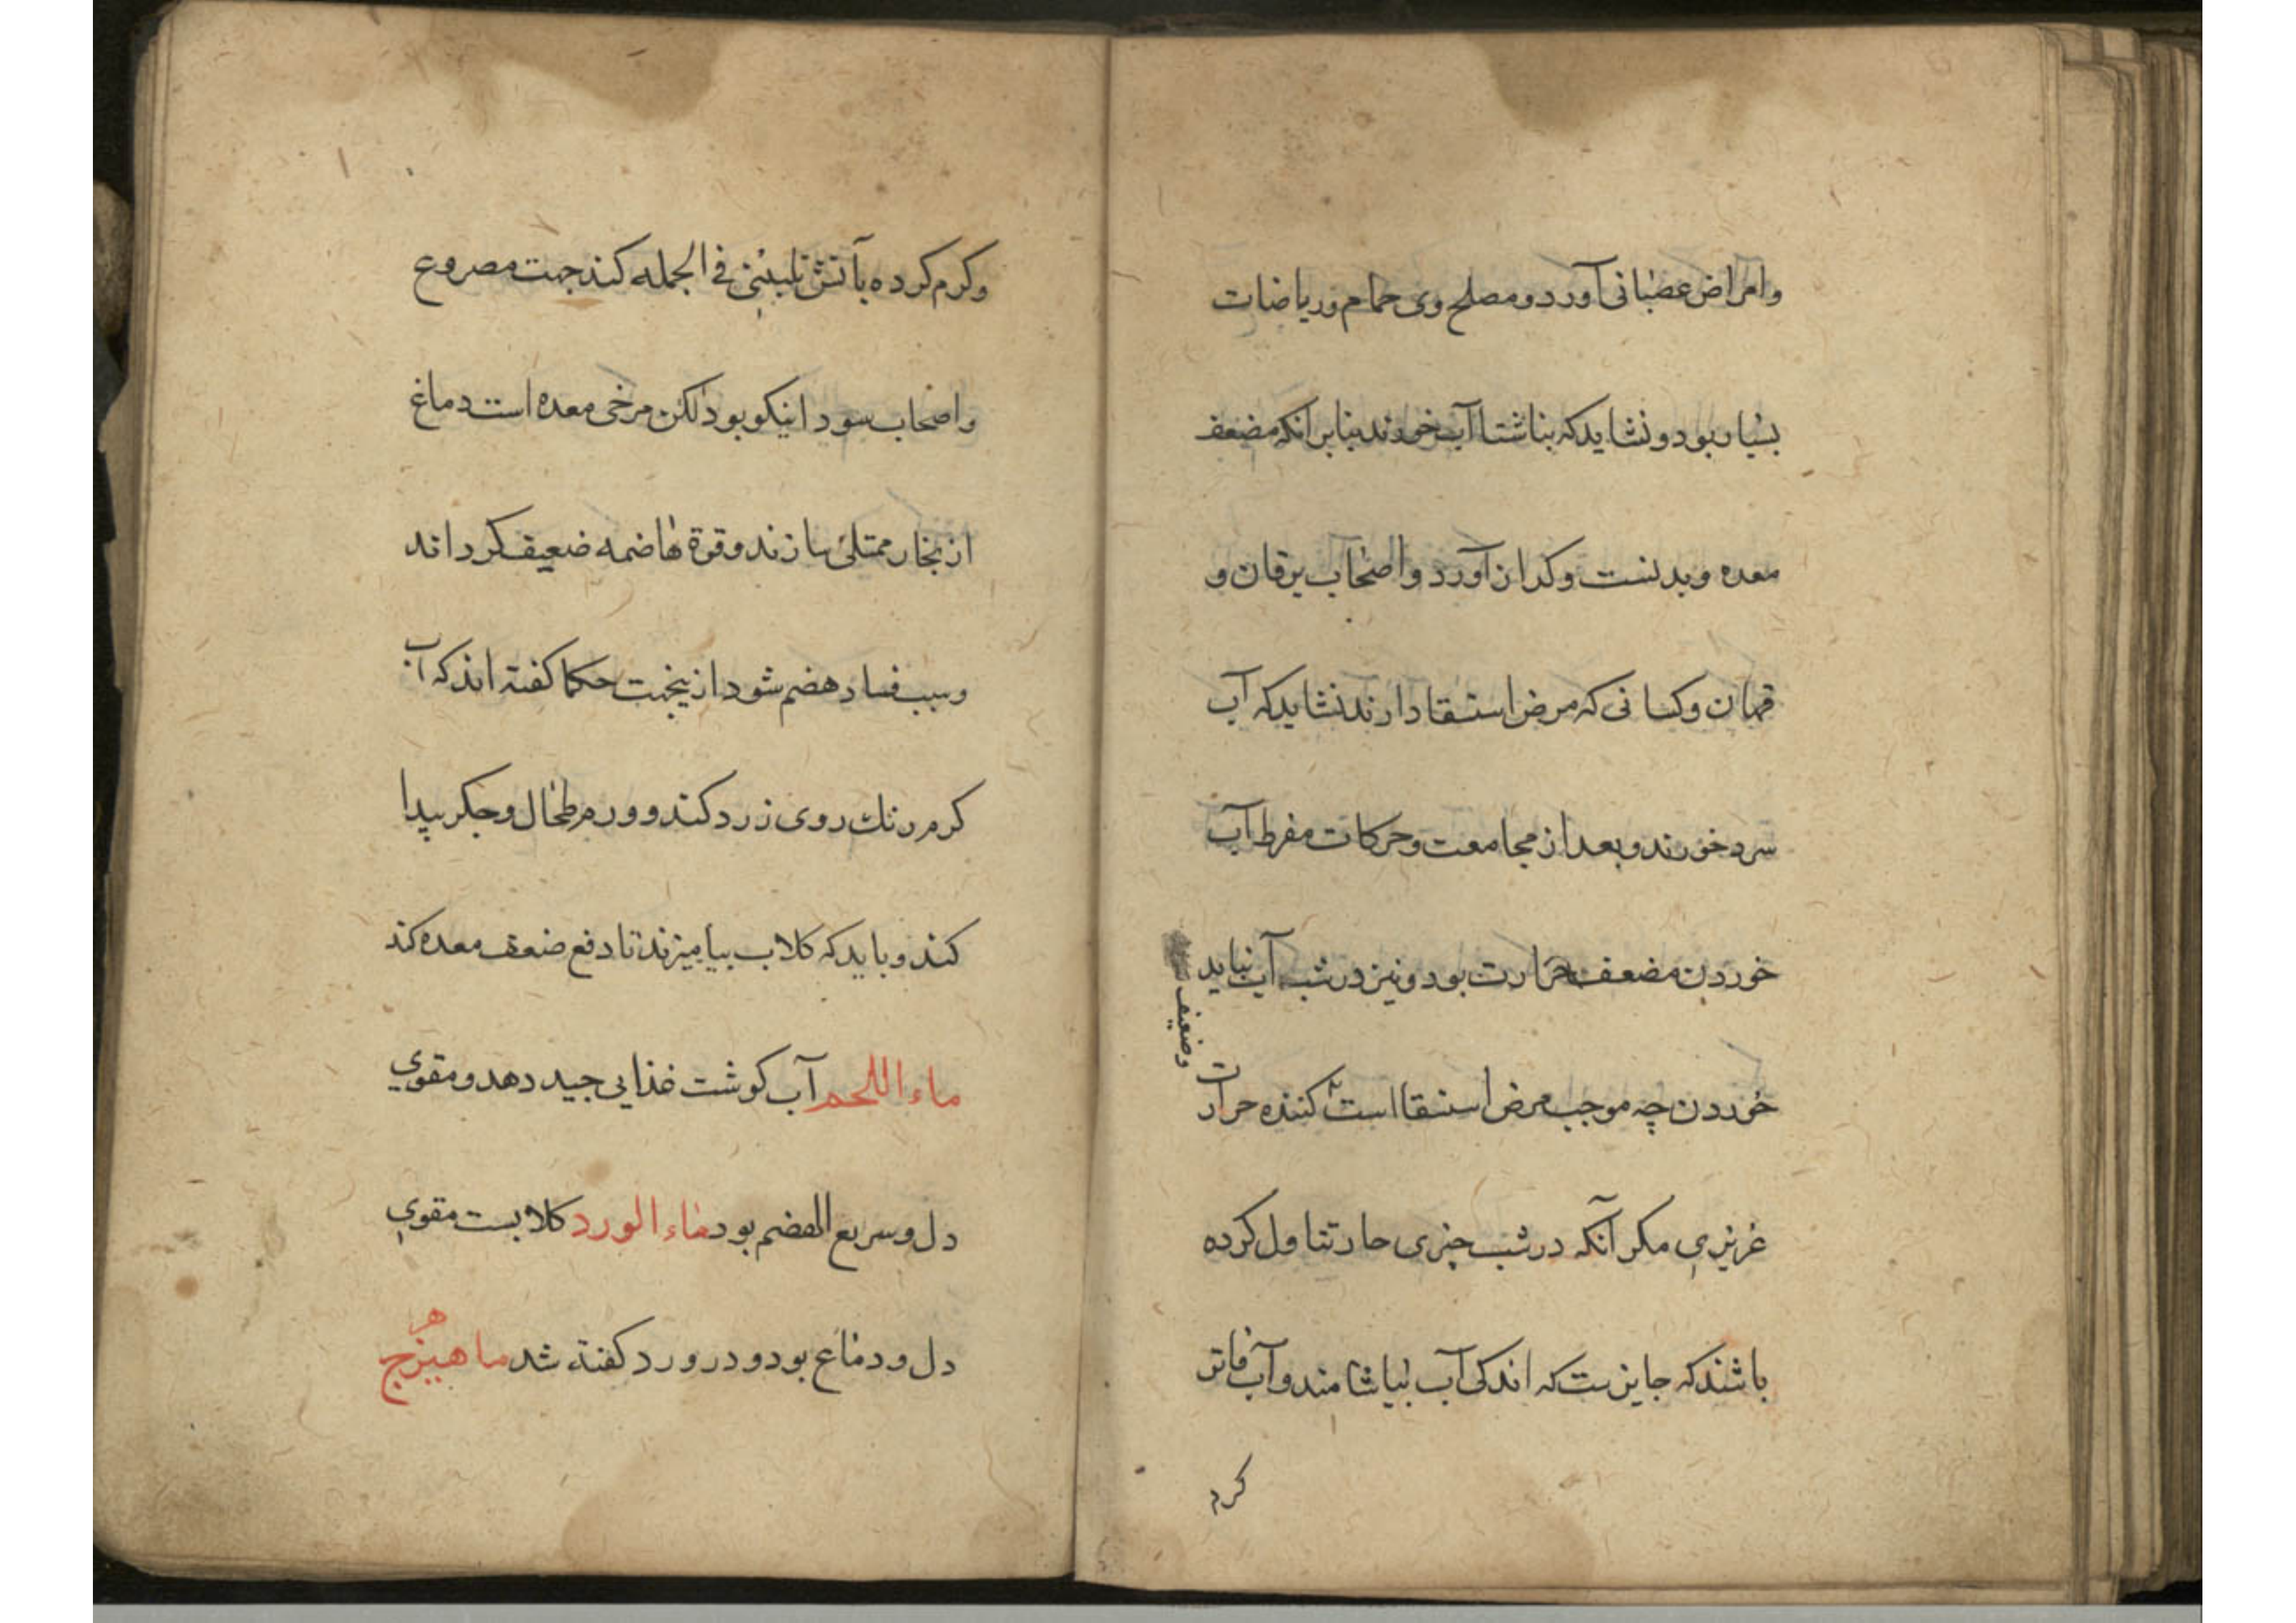 وامراض عصبانی آورد و مصلح وی حمام و ریاضات
بسیار بود و نشاید که بناشتا آب خورند بنابر انکه مضعف
معده و بدنست و کدان آورد و اصحاب یرقان و
قهان و کسانی که مرض استسقا دارند نشاید که آب
سرد خورند و بعد از مجامعت و حرکات مفرط آب
خوردن مضعف حرارت بود و نیز در شب آب نباید
خوردن چه موجب مرض استسقا است کننده حرارت
وضعیف
غریزی مکر آنکه در شب چیزی حار تناول کرده
باشند که جایزست که اندکی آب بیاشامند و آب فاتر
کرم
وکرم کرده بآتش تلیینی فی الجمله کند جهت مصروع
واصحاب سودا نیکو بود لکن مرخی معده است دماغ
از بخار ممتلئ سازند و قوة هاضمه ضعیف کرداند
وسبب فساد هضم شود ازینجهت حکما کفته اند که آب
کرم رنك روی زرد کند و ورم طحال و جکر پیدا
کند و باید که کلاب بیامیزند تا دفع ضعف معده کند
ماء اللحم آب کوشت غذایی جید دهد و مقوی
دل و سریع الهضم بود ماء الورد کلابست مقوی
دل و دماغ بود و در ورد کفته شد ماهیزهرج